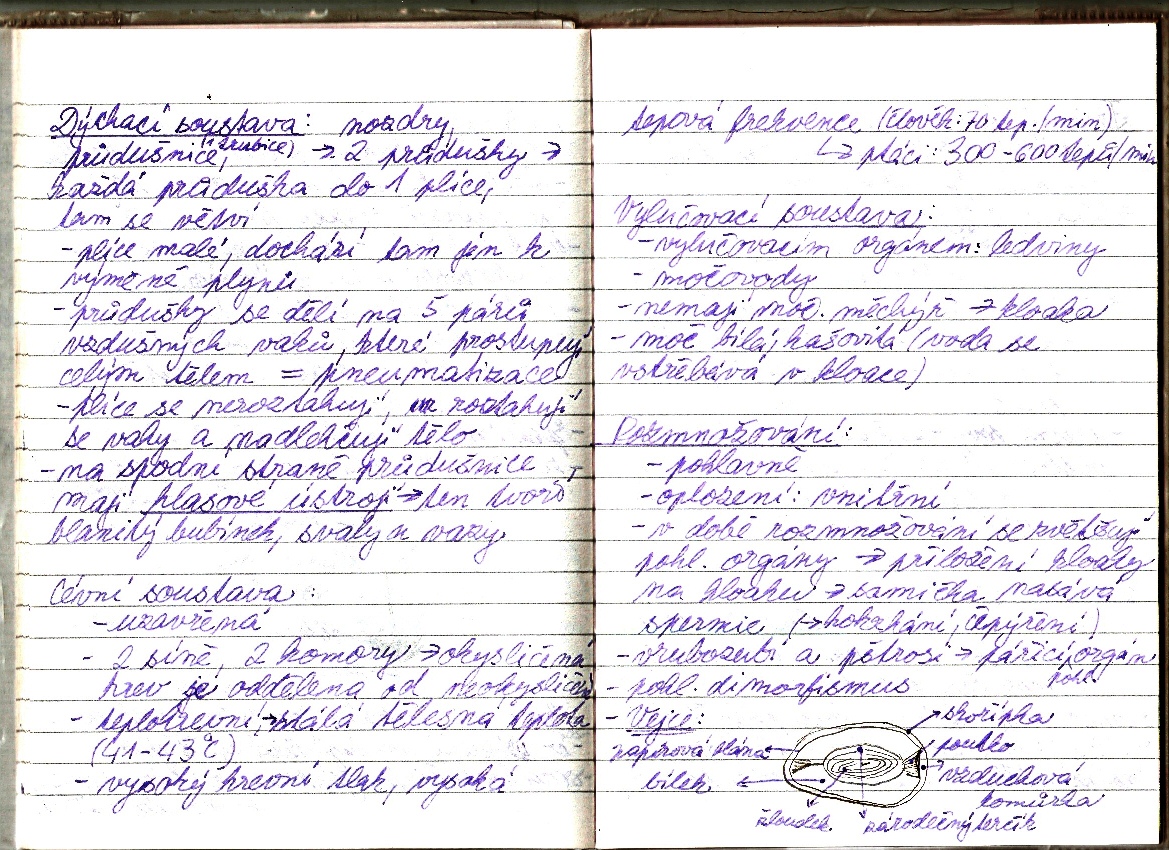 Dýchací soustava: nozdry,
průdušnice, (trubice) → 2 průdušky →
každá průduška do 1 plíce,
tam se větví
- plíce malé, dochází tam jen k
výměně plynů
- průdušky se dělí na 5 párů
vzdušných vaků, které prostupují
celým tělem = pneumatizace
- plíce se neroztahují, roztahují
se vaky a nadlehčují tělo
- na spodní straně průdušnice
mají hlasové ústrojí → ten tvoří
blanitý bubínek, svaly a vazy
Cévní soustava:
- uzavřená
- 2 síně, 2 komory → okysličená
krev je oddělena od neokysličen
- teplokrevní → stálá tělesná teplota
(41-43°C)
- vysoký krevní tlak, vysoká
tepová frekvence (člověk: 70 tep./min)
↳ ptáci: 300-600 tepů/min
Vylučovací soustava:
- vylučovacím orgánem: ledviny
- močovody
- nemají moč. měchýř → kloaka
- moč bílá, kašovitá (voda se
vstřebává v kloace)
Rozmnožování:
- pohlavně
- oplození: vnitřní
- v době rozmnožování se zvětšují
pohl. orgány → přiložení kloaky
na kloaku → samička nasává
spermie (→ kokrhání, čepýření)
- vrubozobí a pštrosi → pářící orgán
- pohl. dimorfismus
- Vejce:
skořápka
papírová blána
poutko
bílek
vzduchová
komůrka
žloutek
zárodečný terčík